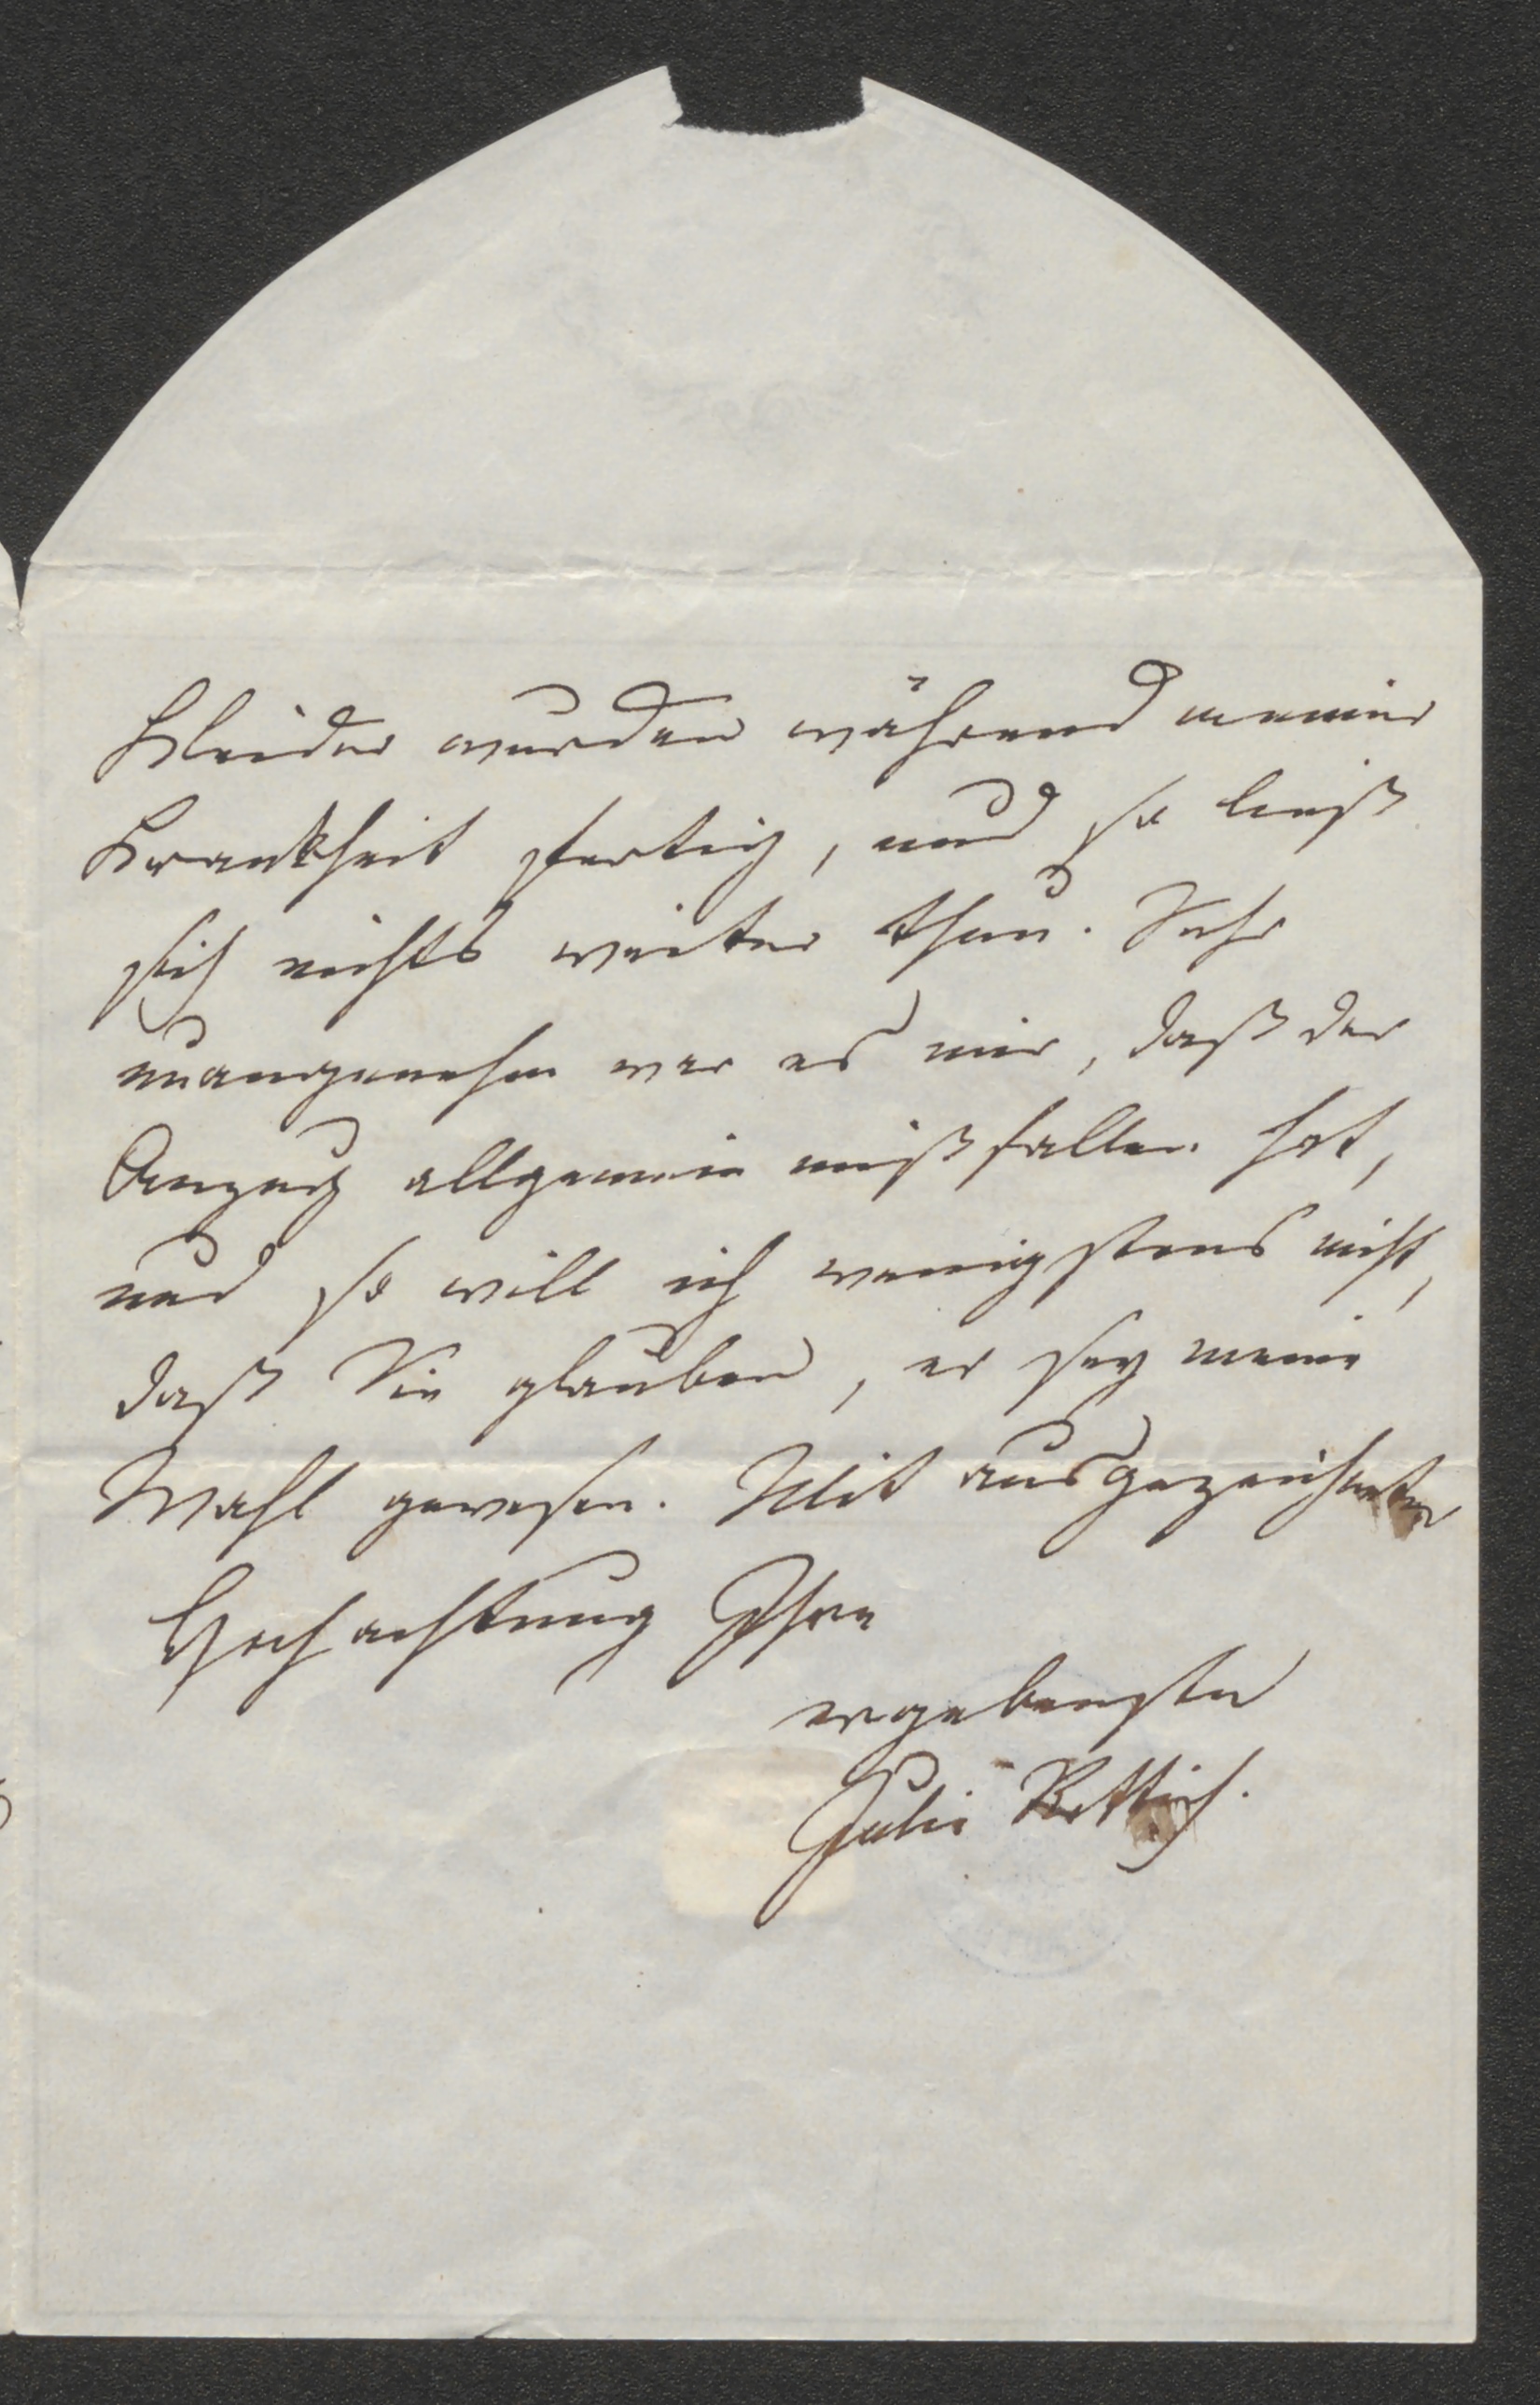 Kleider wurden während meiner
Krankheit fertig, und so ließ
sich nichts weiter thun. Sehr
unangenehm war es mir, daß der
Anzug allgemein mißfallen hat,
und so will ich wenigstens nicht,
daß Sie glauben, er sey meine
Wahl gewesen. Mit ausgezeichneter
Hochachtung Ihre
ergebenste
Julie Rettich.